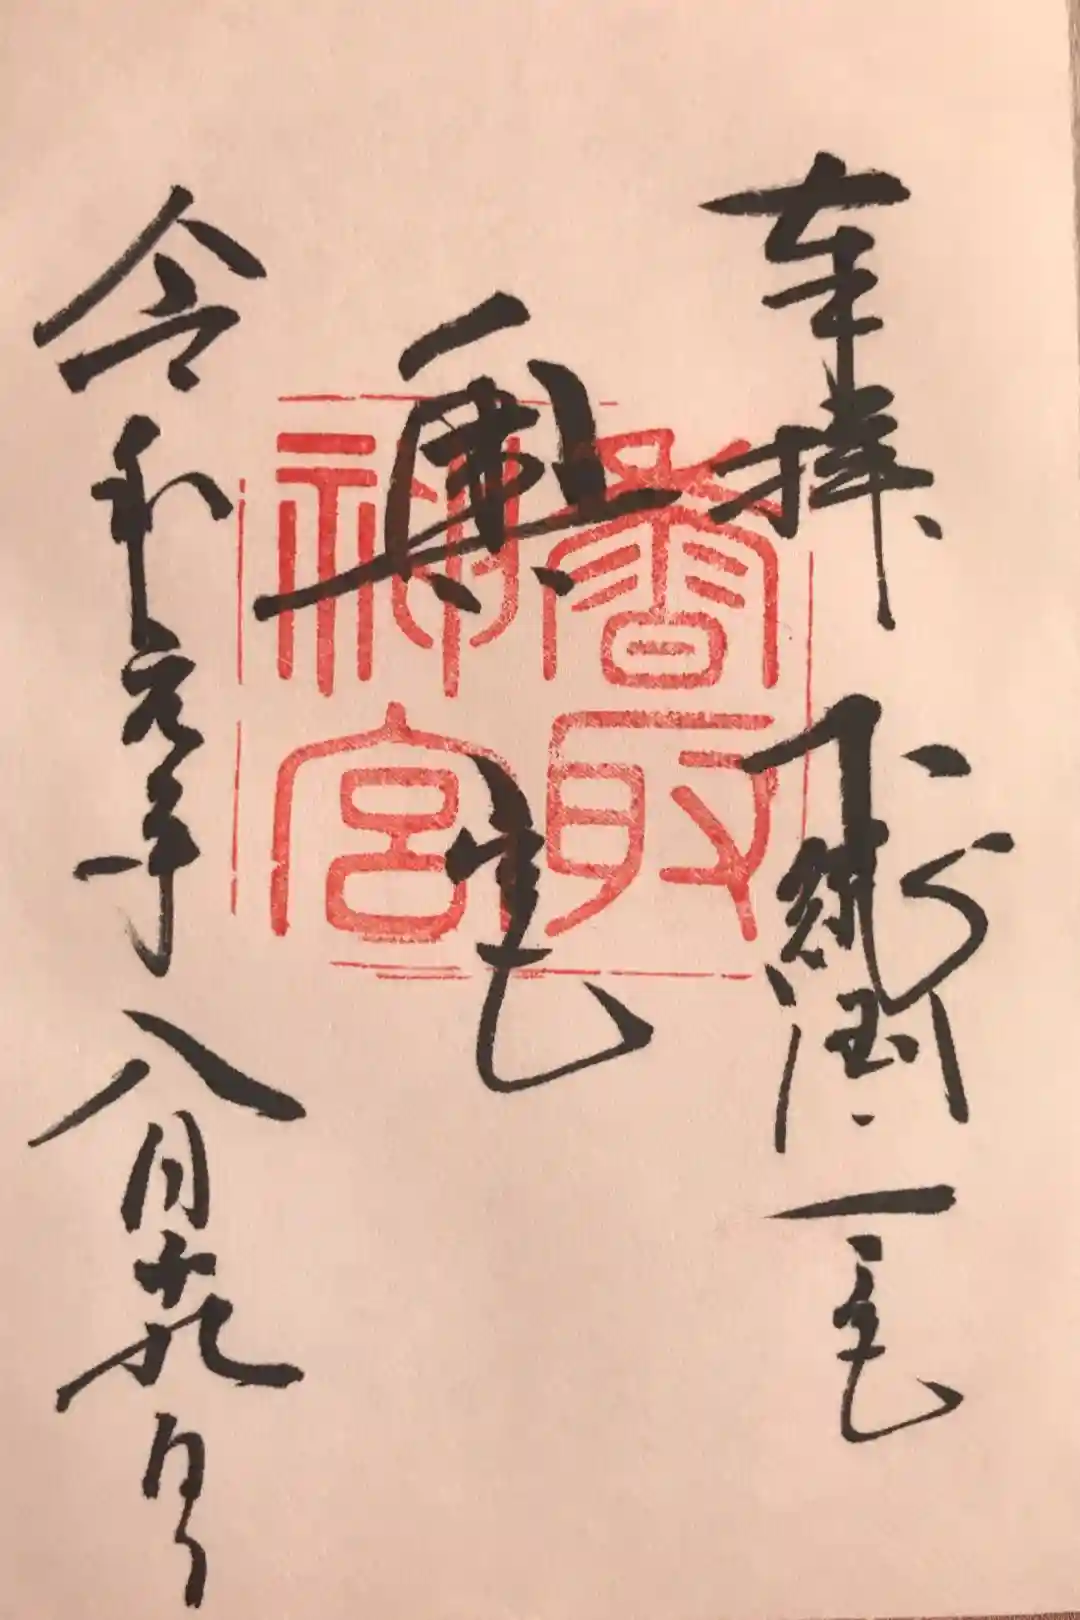 奉拝 下総国一宮
香取神宮
奥宮
令和元年八月十九日